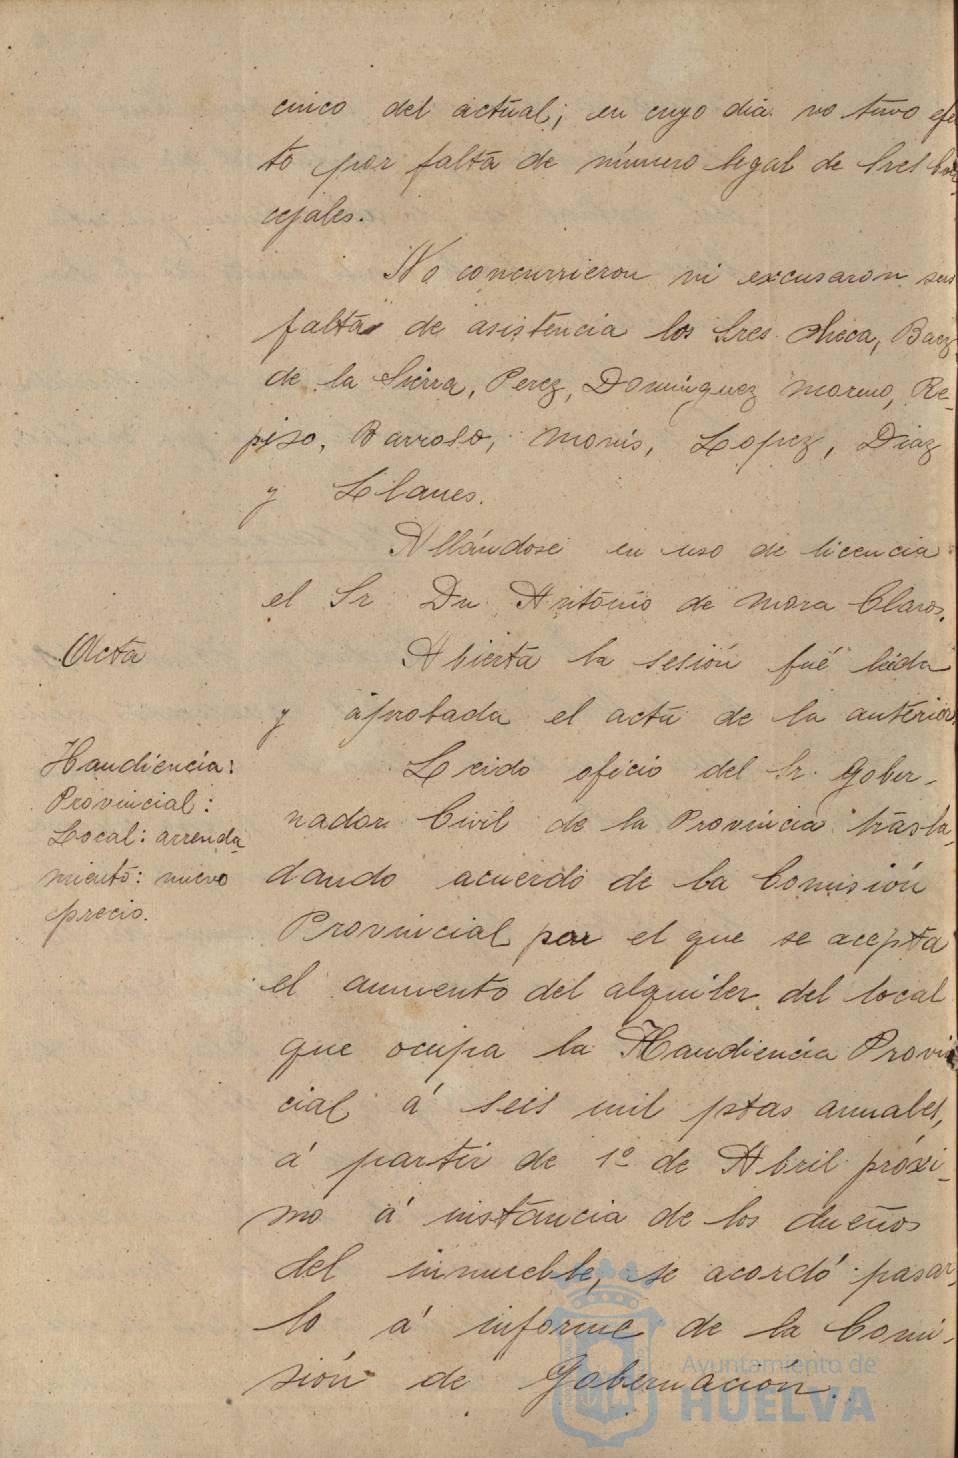 cinco del actual; en cuyo dia no tuvo efec
to por falta de número legal de Sres Con
cejales.
No concurrieron ni excusaron sus
faltas de asistencia los Sres. Checa, Baez
de la Sierra, Perez, Dominguez Moreno, Re-
piso, Barroso, Monís, Lopez, Diaz
y Llanes.
Allándose en uso de licencia
el Sr Dn Antonio de Mora Claros.
Acta
Abierta la sesión fué leida
y aprobada el acta de la anterior.
Haudiencia:
Provincial:
Local: arrenda
miento: nuevo
precio.
Leido oficio del Sr. Gober-
nador Civil de la Provincia trasla-
dando acuerdo de la Comisión
Provincial por el que se acepta
el aumento del alquiler del local
que ocupa la Haudiencia Provin
cial á seis mil ptas anuales,
á partir de 1º de Abril próxi-
mo á instancia de los dueños
del inmueble, se acordó pasar-
lo á informe de la Comi-
sión de Gobernacion.
Ayuntamiento de
HUELVA